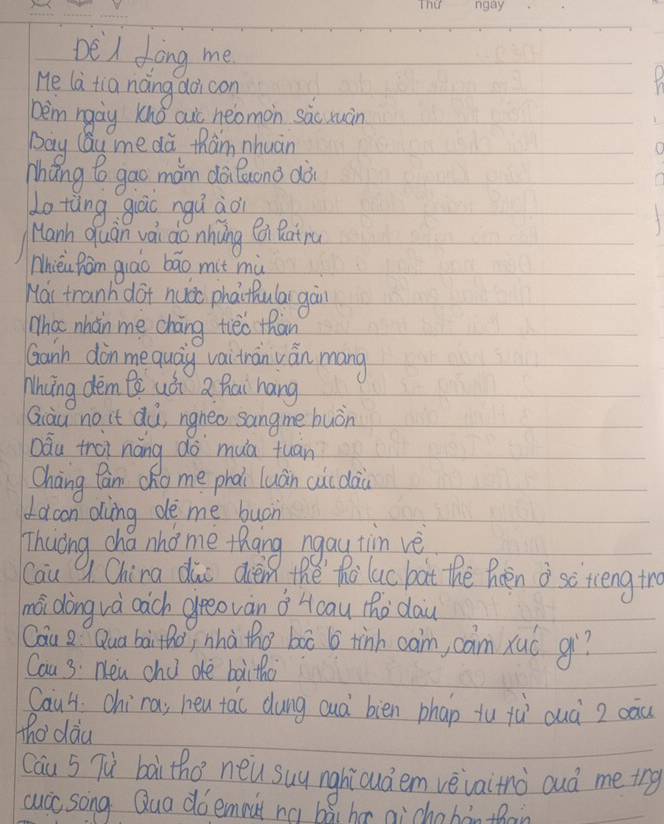 Thứ ngày
Đề 1 Lòng mẹ
Mẹ là tia nắng đời con
Đêm ngày khổ cực héo mòn sắc xuân
Bây lâu mẹ đã thầm nhuần
Những lo gạo mắm dãi đời
Lo từng giấc ngủ à ơi
Manh quần vải áo những lời
Nhiều hôm giáo bão mịt mù
Mái tranh dột nước phải thu lại gần
Nhọc nhằn mẹ chẳng tiếc thân
Gánh dồn mẹ quẩy vai trần vẫn mang
Những đêm lệ ướt 2 hai hàng
Giàu no ít dù, nghèo sang mẹ buồn
Dẫu trời nắng đổ mưa tuân
Chẳng làm cho mẹ phải luồn cúi đâu
Là con đừng để mẹ buồn
Thương cha nhớ mẹ tháng ngày tìm về
Câu 1. Chỉ ra đặc điểm thể thơ lục bát thể hiện ở số tiếng tro
mỗi dòng và cách gieo vần ở 4 câu thơ đầu
Câu 2 Qua bài thơ, nhà thơ bộc lộ tình cảm, cảm xúc gì?
Câu 3: Nêu chủ đề bài thơ
Câu 4: Chỉ ra, nêu tác dụng của biện pháp tu từ của 2 câu
thơ đầu
Câu 5 Từ bài thơ nêu suy nghĩ của em về vai trò của mẹ trg
cuộc sống Qua đó em rút ra bài học gì cho bản thân